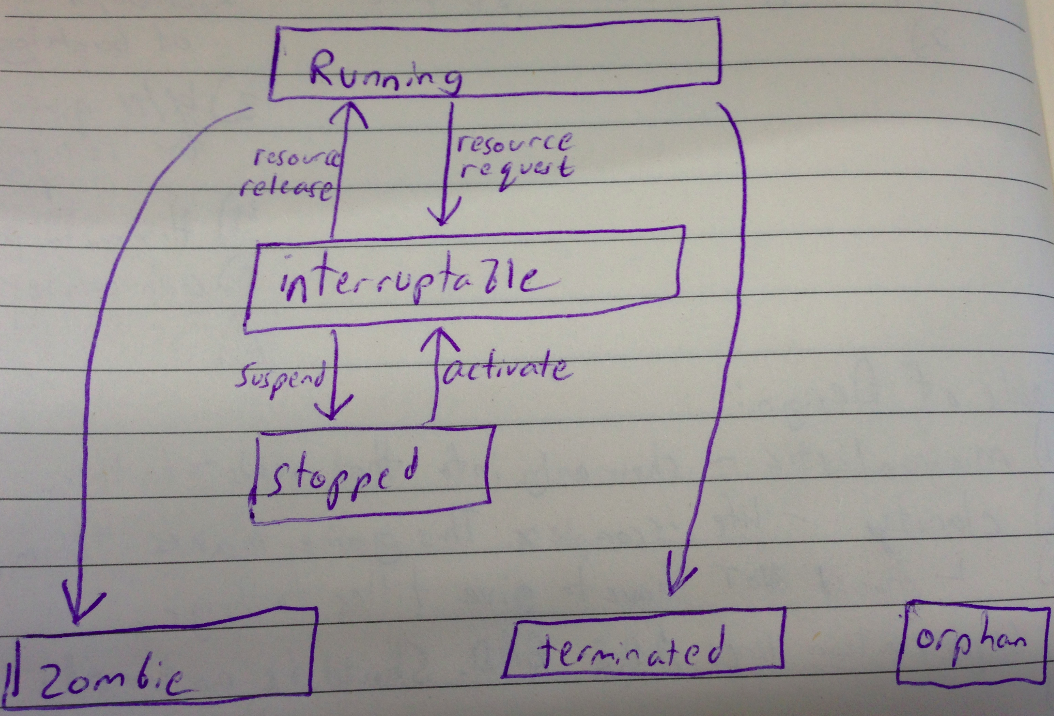 Running
resource
release
resource
request
interruptable
suspend
activate
stopped
zombie
terminated
orphan